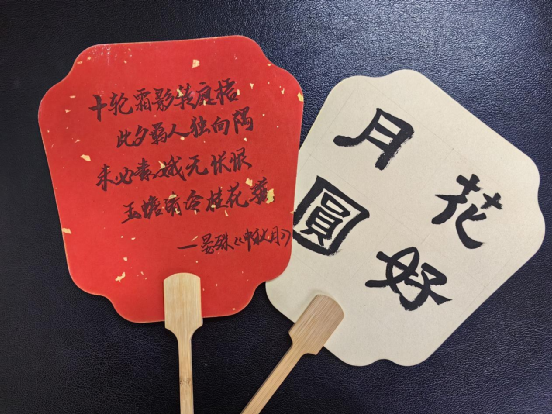 十轮霜影转庭梧
此夕羁人独向隅
未必素娥无怅恨
玉蟾清冷桂花孤
—晏殊《中秋月》
花好
月圓